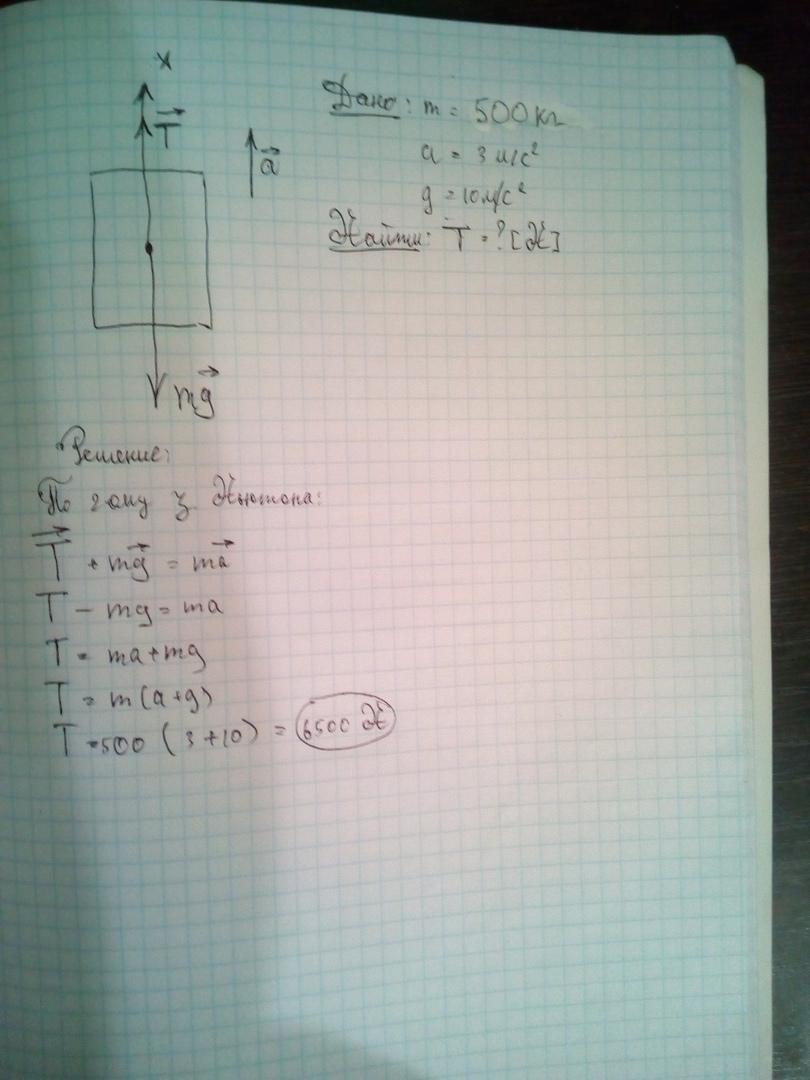 x
T
a
mg
Дано: m = 500 кг
a = 3 м/с²
g = 10 м/с²
Найти: T = ? [Н]
Решение:
По 2 ому з. Ньютона:
T + mg = ma
T - mg = ma
T = ma + mg
T = m(a+g)
T = 500 (3+10) = 6500 Н